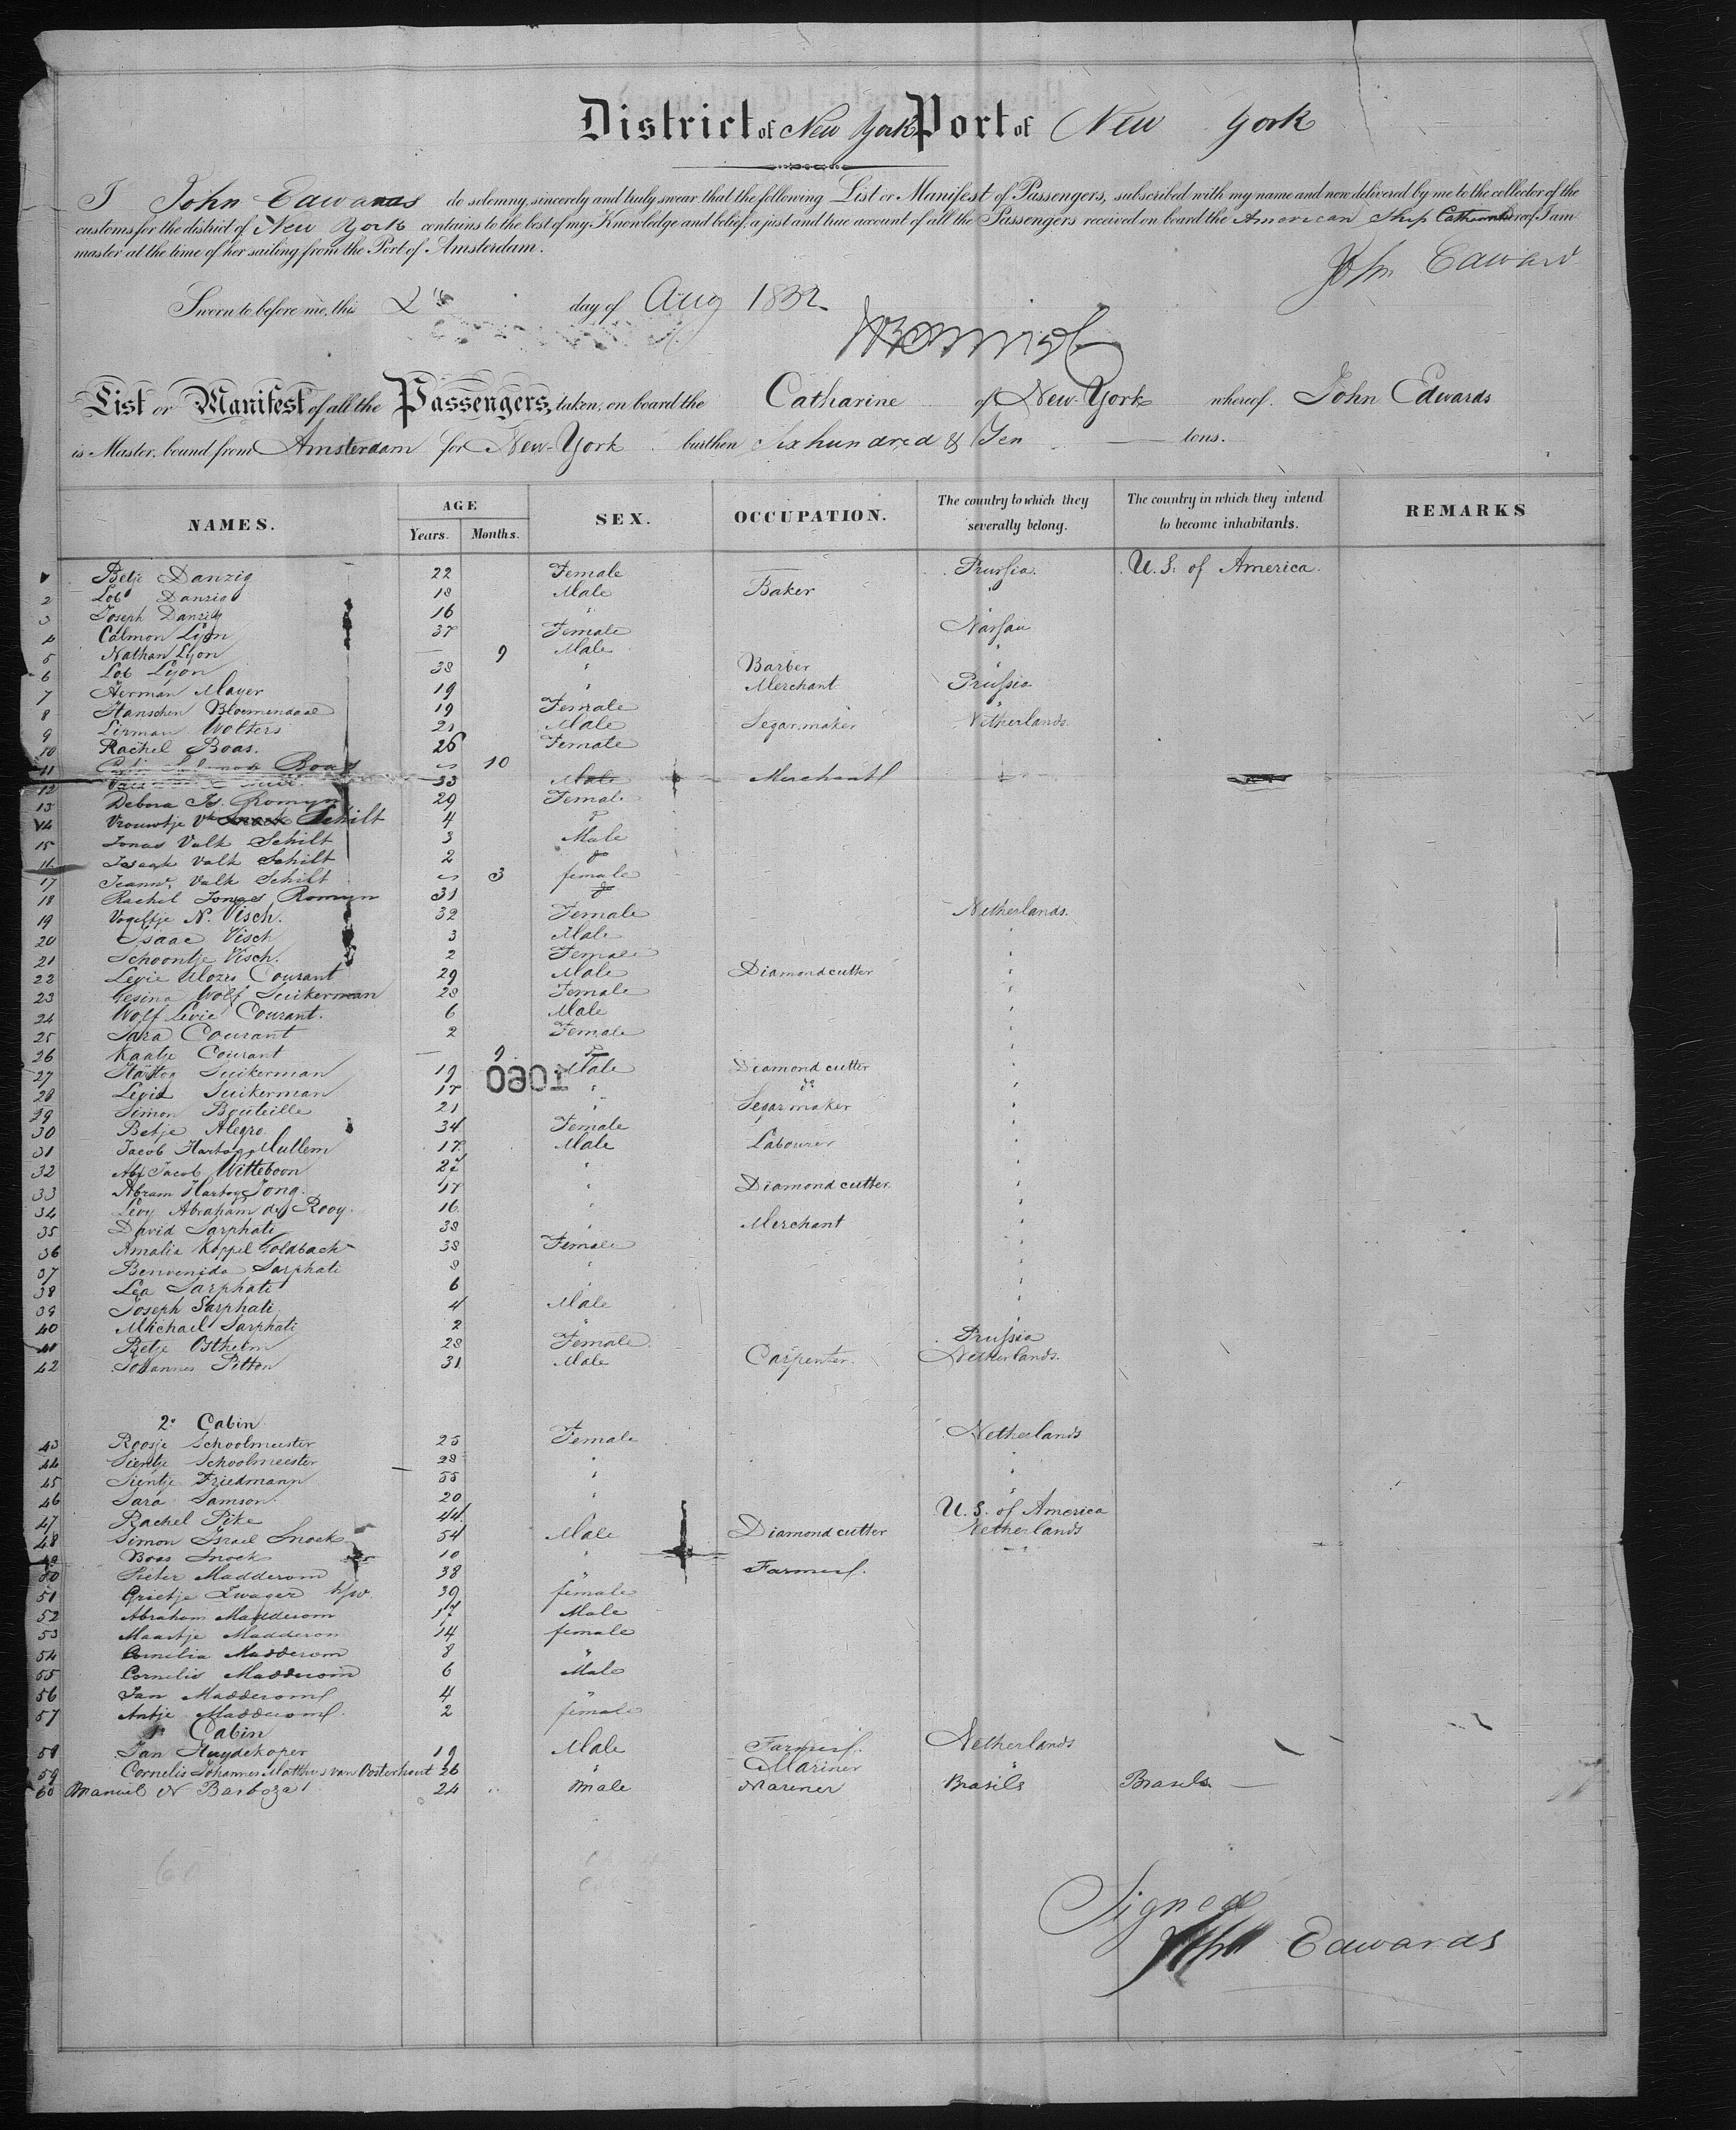 District of New York Port of New York
I John Edwards do solemny, sincerely and truly swear that the following List or Manifest of Passengers, subscribed with my name and now delivered by me to the collector of the
customs for the district of New York contains to the best of my Knowledge and belief, a just and true account of all the Passengers received on board the American Ship Catharine whereof I am
master at the time of her sailing from the Port of Amsterdam.
John Edward
Sworn to before me, this 2 day of Aug
List or Manifest of all the Passengers, taken, on board the Catharine of New-York whereof. John Edwards
is Master, bound from Amsterdam for New-York burthen Six hundred & Ten tons.
NAMES. AGE Years. Months. SEX. OCCUPATION. The country to which they severally belong. The country in which they intend to become inhabitants. REMARKS
Betje Danzig 22 Female Prussia. U. S. of America.
2 Lob Danzig 18 Male Baker "
3 Joseph Danzig 16 "
4 Calmon Lyon 37 Female Nassau
5 Nathan Lyon — 9 Male "
6 Lob Lyon 38 " Barber "
7 Herman Mayer 19 " Merchant Prussia
8 Hanschen Bloemendaal 19 Female "
9 Lirman Wolters 21 Male Segarmaker Netherlands.
10 Rachel Boas. 26 Female
11 Boas 10
12 33 Male Merchant
13 Debora Is. Romyn 29 Female
14 Vrouwtje Vk Schilt 4 "
15 Jonas Valk Schilt 3 Male
16 Isaak Valk Schilt 2 do
17 Jeann. Valk Schilt 3 female
18 Rachel Jonges Romyn 31 do
19 Vogeltje N. Visch. 32 Female Netherlands.
20 Isaac Visch 3 Male "
21 Schoontje Visch. 2 Female "
22 Levie Mozes Courant 29 Male Diamondcutter "
23 Gesina Wolf Suikerman 28 Female "
24 Wolf Levie Courant. 6 Male "
25 Sara Courant 2 Female "
26 Kaatje Courant — 9 do "
27 Hartog Suikerman 19 Male Diamond cutter "
0601
28 Levie Suikerman 17 " do "
29 Simon Bouteille 21 " Segarmaker "
30 Betje Alegro 34 Female "
31 Jacob Hartog Mullem 17 Male Labourer "
32 Abr Jacob Witteboon 27 " "
33 Abram Hartog Jong. 17 " Diamond cutter "
34 Levy Abraham de Rooy. 16 " "
35 David Sarphati 38 " Merchant "
36 Amalia Koppel Goldbach 38 Female "
37 Benvenida Sarphati 8 " "
38 Lea Sarphati 6 " "
39 Joseph Sarphati 4 Male "
40 Michael Sarphati 2 " "
41 Betje Ostheim 28 Female Prussia
42 Johannes Pitton 31 Male Carpenter. Netherlands.
2e Cabin
43 Roosje Schoolmeester 25 Female Netherlands
44 Sientje Schoolmeester 28 " "
45 Sientje Friedmann 55 " "
46 Sara Samson. 20 " "
47 Rachel Pike 44 U. S. of America
48 Simon Israel Snoek 54 Male Diamond cutter Netherlands
49 Boas Snoek 10 "
50 Pieter Madderom 38 " Farmer
51 Grietje Zwager 39 female
52 Abraham Madderom 17 Male
53 Maartje Madderom 14 female
54 Cornelia Madderom 8 "
55 Cornelis Madderom 6 Male
56 Jan Madderom 4 "
57 Antje Madderom 2 female
1e Cabin
58 Jan Huydekoper 19 Male Farmer Netherlands
59 Cornelis Johannes Matthys van Oosterhout 26 " Mariner "
60 Manuel N Barboza 24 Male Mariner Brasils Brasils
Signed
John Edwards